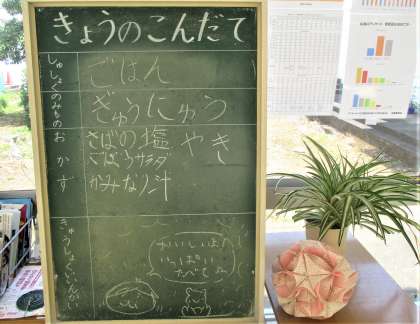 きょうのこんだて
しゅしょく
ごはん
のみもの
ぎゅうにゅう
おかず
さばの塩やき
ごぼうサラダ
かみなり汁
きゅうしょくいいんかい
おいしいよ!
いっぱい
たべてね